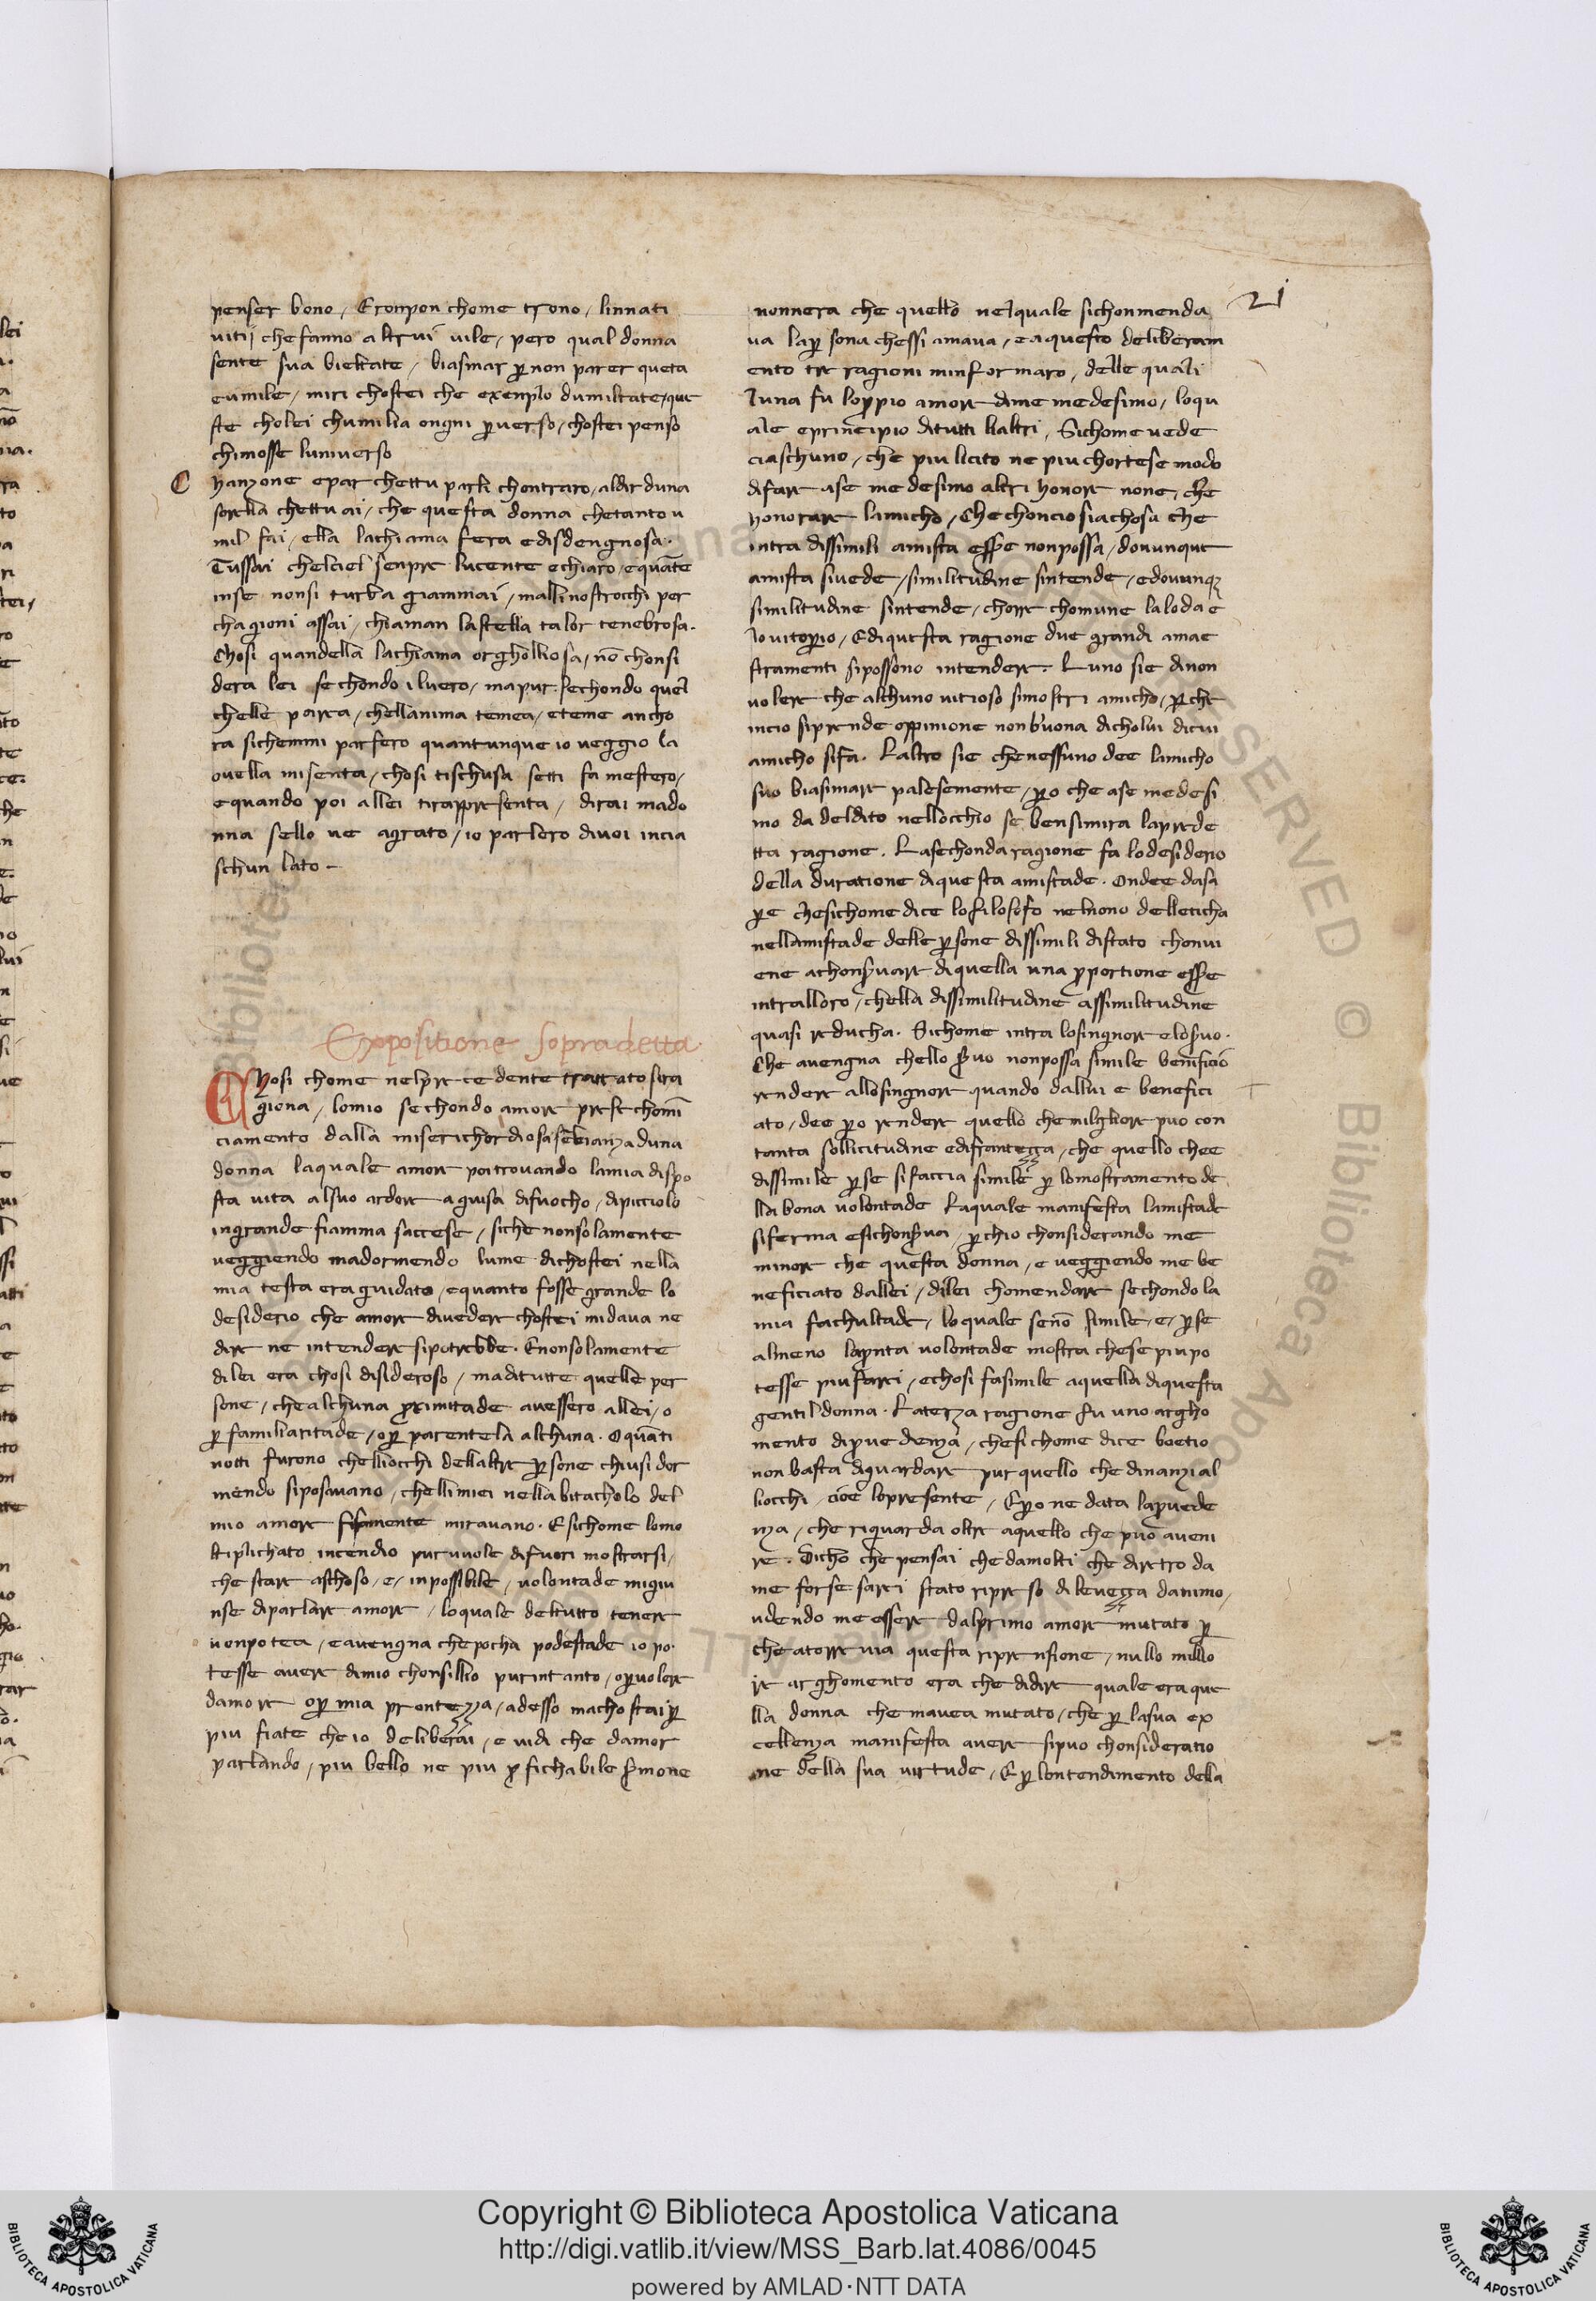 penser bono / E ronpon chome trono / linnati
uitij che fanno altrui uile / pero qual donna
sente sua bieltate / biasmar ꝑ non parer queta
eumile / miri chostei che exenplo dumiltate / que
ste cholei chumilia ongni ꝑuerso / chostei penso
chimosse luniuerso
C hanzone epar chettu parli chontraro / aldir duna
sorella chettu ai / che questa donna chetanto u
mil fai / ella lachiama fera edisdengnosa.
Tussai chelciel senpre lucente echiaro / equāte
inse nonsi turba giammai / mallinostrocchi per
chagioni assai / chiaman lastella talor tenebrosa.
Chosi quandella lachiama orghollio sa / nō chonsi
dera lei sechondo iluero / mapur sechondo quel
chelle parea / chellanima temea / eteme ancho
ra sichemmi par fero quantunque io ueggio la
ouella misenta / chosi tischusa setti fa mestero /
equando poi allei tirappresenta / dirai mado
nna sello ue agrato / io parlero diuoi incia
schun lato -
Expositione sopradetta
Chosi chome nelprecedente trattato sira
giona / lomio sechondo amore prese chomī
ciamento dalla miserichordiosa senbianza duna
donna laquale amore poi trouando lamia dispo
sta uita alsuo ardore aguisa difuocho / dipicciolo
ingrande fiamma saccese / siche nonsolamente
ueggiendo madormendo lume dichostei nella
mia testa era guidato / equanto fosse grande lo
desiderio che amore diueder chostei midaua ne
dire ne intendere sipotrebbe. Enonsolamente
dilei era chosi disideroso / maditutte quelle per
sone / chealchuna ꝓximitade auessero allei / o
ꝑ familiaritade / oꝑ parentela alchuna. O quāti
notti furono chelliocchi dellaltre ꝑsone chiusi dor
mendo siposauano / chellimiei nellabitacholo del
mio amore fisamente mirauano. E sichome lomo
ltiplichato incendio pur uuole difuori mostrarsi /
che stare aschoso / e / inpossibile / uolontade migiu
nse diparlare amore / loquale deltutto tenere
nonpotea / eauengna chepocha podestade io po
tesse auere dimio chonsillio pur intanto / oꝑ uolere
damore oꝑ mia prontezza / adesso macho stai ꝑ
piu fiate che io deliberai / e uidi che damor
parlando / piu bello ne piu ꝓfichabile ẜmone
21
nonnera che quello nelquale sichonmenda
ua laꝑ sona chessi amaua / eaquesto deliberam
ento tre ragioni minformaro / delle quali
luna fu loꝓpio amore dime medesimo / loqu
ale eprincipio ditutti lialtri / Sichome uede
ciaschuno / che piu licito ne piu chortese modo
difare ase medesimo altri honore none / che
honorare lamicho / Che choncio siachosa che
intra dissimili amista essere nonpossa / douunque
amista siuede / similitudine sintende / edouunqꝫ
similitudine sintende / chorre chomune laloda e
louitoꝑio / Ediquesta ragione due grandi amae
stramenti sipossono intendere. Luno sie dinon
uolere che alchuno uitioso simostri amicho / ꝑche
incio siprende oppinione nonbuona dicholui dicui
amicho sifa. Laltro sie chenessuno dee lamicho
suo biasimare palesemente / ꝑo che ase medesi
mo da deldito nellocchio se bensimira laprede
tta ragione. Lasechonda ragione fa lodesiderio
della duratione diquesta amistade. Ondee dasa
ꝑe chesichome dice lofilosofo nelnono delleticha
nellamistade delle ꝑsone dissimili distato chonui
ene achonẜuare diquella una ꝓportione essere
intralloro / chella dissimilitudine assimilitudine
quasi reducha. Sichome intra losingnore eloẜuo.
Che auengna chello ẜuo nonpossa simile beneficio
rendere allosingnore quando dallui e benefici
ato / dee ꝑo rendere quello chemilgliore puo con
tanta sollicitudine edifrantezza / che quello chee
dissimile ꝑ se sifaccia simile ꝑ lomostramento de
lla bona uolontade Laquale manifesta lamistade
siferma esichonẜua / ꝑchio chonsiderando me
minore che questa donna / e ueggiendo me be
neficiato dallei / dilei chomendare sechondo la
mia fachultade / loquale senō simile / e / ꝑ se
almeno laꝓnta uolontade mostra chese piu po
tesse piu farei / echosi fasimile aquella diquesta
gentil donna. Laterza ragione fu uno argho
mento diꝓuedenza / chesichome dice boetio
non basta diguardare pur quello che dinanzi al
liocchi / cioe lopresente / Eꝑo ne data laꝓuede
nza / che riguarda oltre aquello che puo aueni
re. Dicho che pensai che damolti che diretro da
me forse sarei stato ripreso dileuezza danimo /
udendo me essere dalprimo amore mutato ꝑ
che atorre uia questa riprensione / nullo millo
re arghomento era che didire quale era que
lla donna che mauea mutato / che ꝑ lasua ex
cellenza manifesta auere sipuo chonsideratio
ne della sua uirtude / Eꝑ lontendimento della
Copyright © Biblioteca Apostolica Vaticana
http://digi.vatlib.it/view/MSS_Barb.lat.4086/0045
powered by AMLAD·NTT DATA
BIBLIOTECA APOSTOLICA VATICANA
BIBLIOTECA APOSTOLICA VATICANA